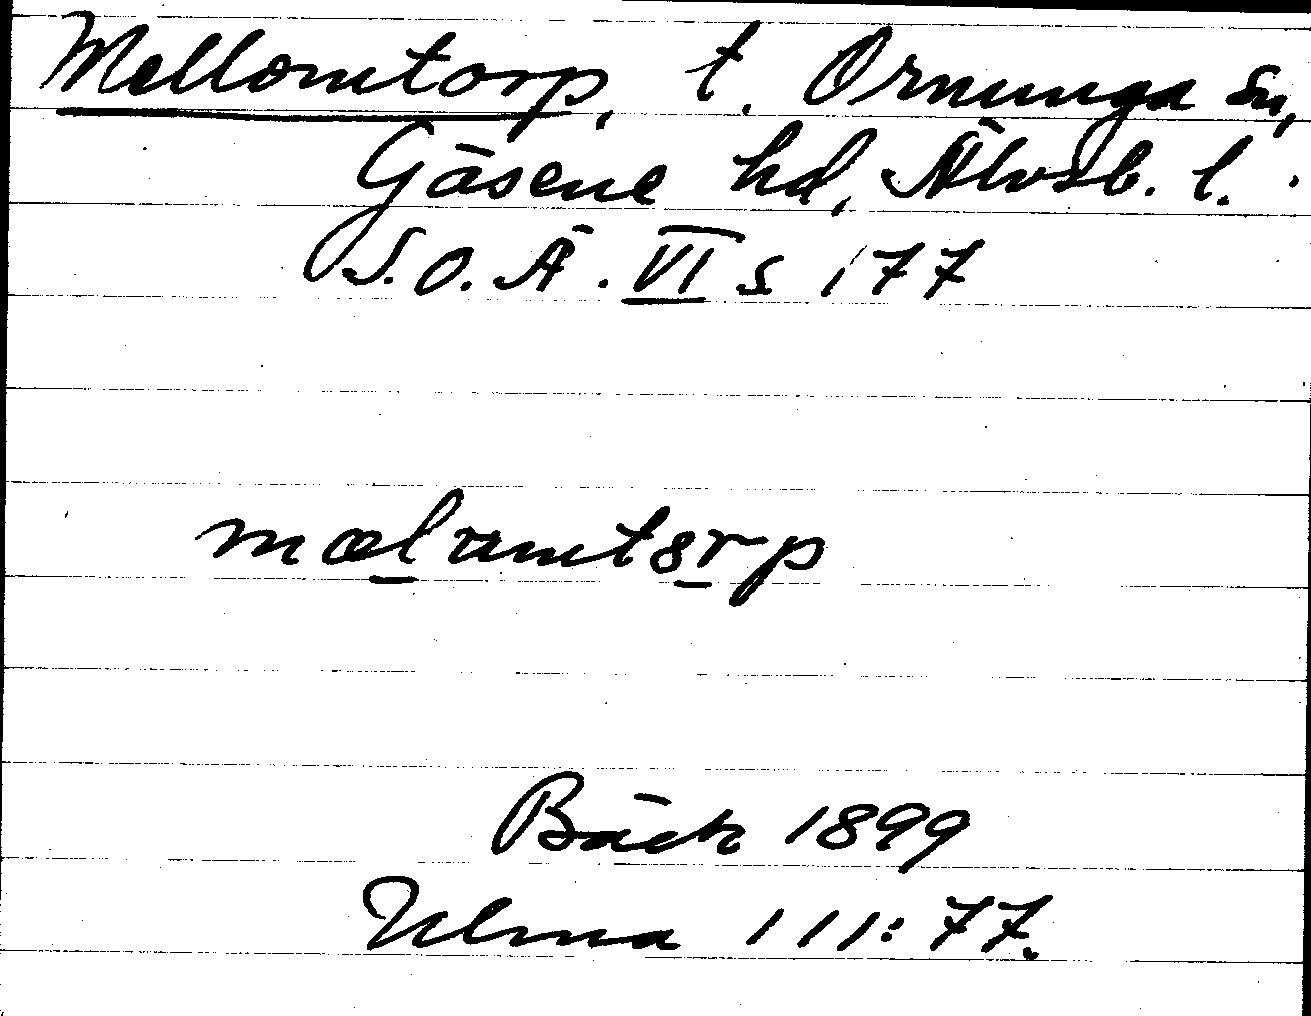 Mellomtorp, t. Ornunga sn,
Gäsene hd, Älvsb. l.
S.O.Ä. VI s 177
mælamtørp
Bäck 1899
Ulma 111:77.